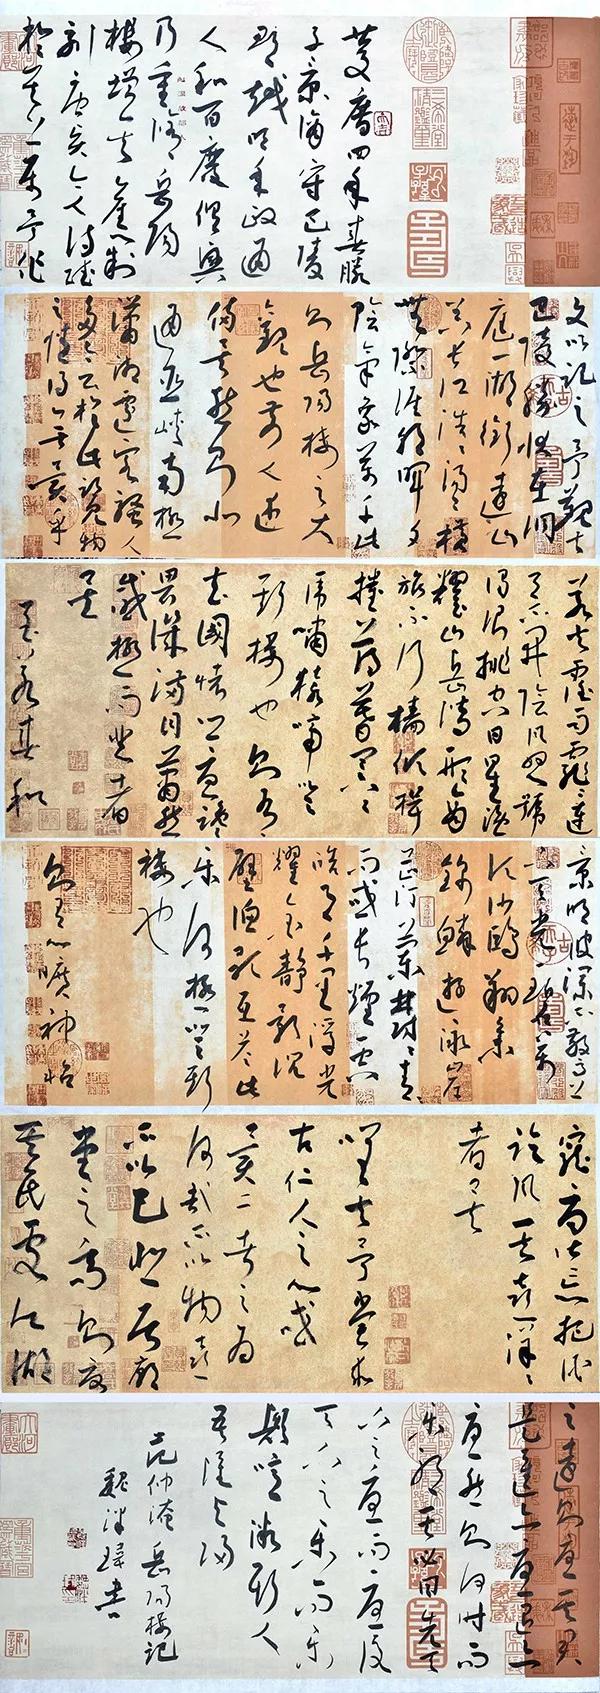 慶曆四年春滕
子京謫守巴陵
郡越明年政通
人和百廢俱興
乃重修岳陽
樓增其舊制
刻唐賢今人詩賦
於其上屬予作
文以記之予觀夫
巴陵勝狀在洞
庭一湖銜遠山
吞長江浩浩湯湯橫
無際涯朝暉夕
陰氣象萬千此
則岳陽樓之大
觀也前人述
備矣然則北
通巫峽南極
瀟湘遷客騷人
多會於此覽物
之情得無異乎
若夫霪雨霏霏連
月不開陰風怒號
濁浪排空日星隱
耀山岳潛形商
旅不行檣傾楫
摧薄暮冥冥
虎嘯猿啼登
斯樓也則有
去國懷鄉憂讒
畏譏滿目蕭然
感極而悲者
矣
至若春和
景明波瀾不驚上
下天光一碧萬
頃沙鷗翔集
錦鱗游泳岸
芷汀蘭郁郁青青
而或長煙一空
皓月千里浮光
耀金靜影沉
璧漁歌互答此
樂何極登斯
樓也
則有心曠神怡
寵辱皆忘把酒
臨風其喜洋洋
者矣
嗟夫予嘗求
古仁人之心或
異二者之為
何哉不以物喜
不以己悲居廟
堂之高則憂
其民處江湖
之遠則憂其君
是進亦憂退亦
憂然則何時而
樂耶其必曰先天
下之憂而憂後
天下之樂而樂
歟噫微斯人
吾誰與歸
范仲淹岳陽樓記
書